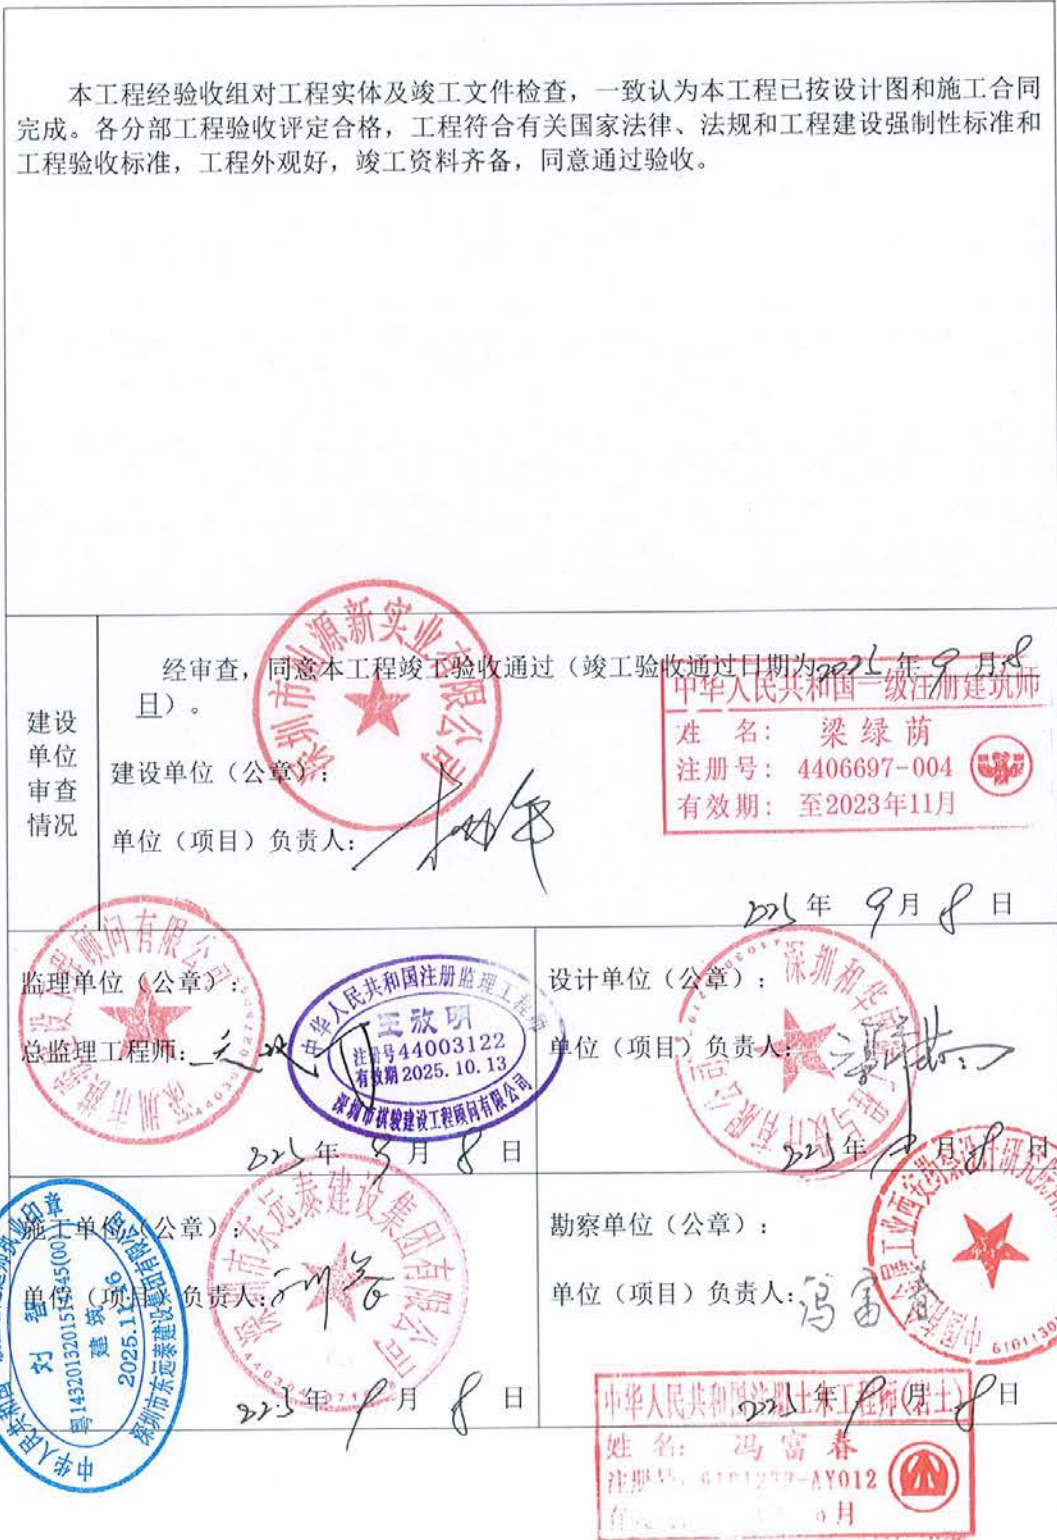 本工程经验收组对工程实体及竣工文件检查，一致认为本工程已按设计图和施工合同
完成。各分部工程验收评定合格，工程符合有关国家法律、法规和工程建设强制性标准和
工程验收标准，工程外观好，竣工资料齐备，同意通过验收。
建设
单位
审查
情况
经审查，同意本工程竣工验收通过（竣工验收通过日期为2025年9月8
日）。
建设单位（公章）：
单位（项目）负责人：
2025年9月8日
源新实业有限公司
中华人民共和国一级注册建筑师
姓 名： 梁绿荫
注册号： 4406697-004
有效期： 至2023年11月
监理单位（公章）：
总监理工程师：
2025年9月8日
中华人民共和国注册监理工程师
王放明
注册号44003122
有效期2025.10.13
深圳市祺骏建设工程顾问有限公司
设计单位（公章）：
单位（项目）负责人：
2025年9月8日
施工单位（公章）：
单位（项目）负责人：
2025年9月8日
深圳市东远泰建设集团有限公司
建筑
深圳市东远泰建设集团有限公司
勘察单位（公章）：
单位（项目）负责人：冯富春
2025年9月8日
中华人民共和国注册土木工程师(岩土)
姓 名： 冯富春